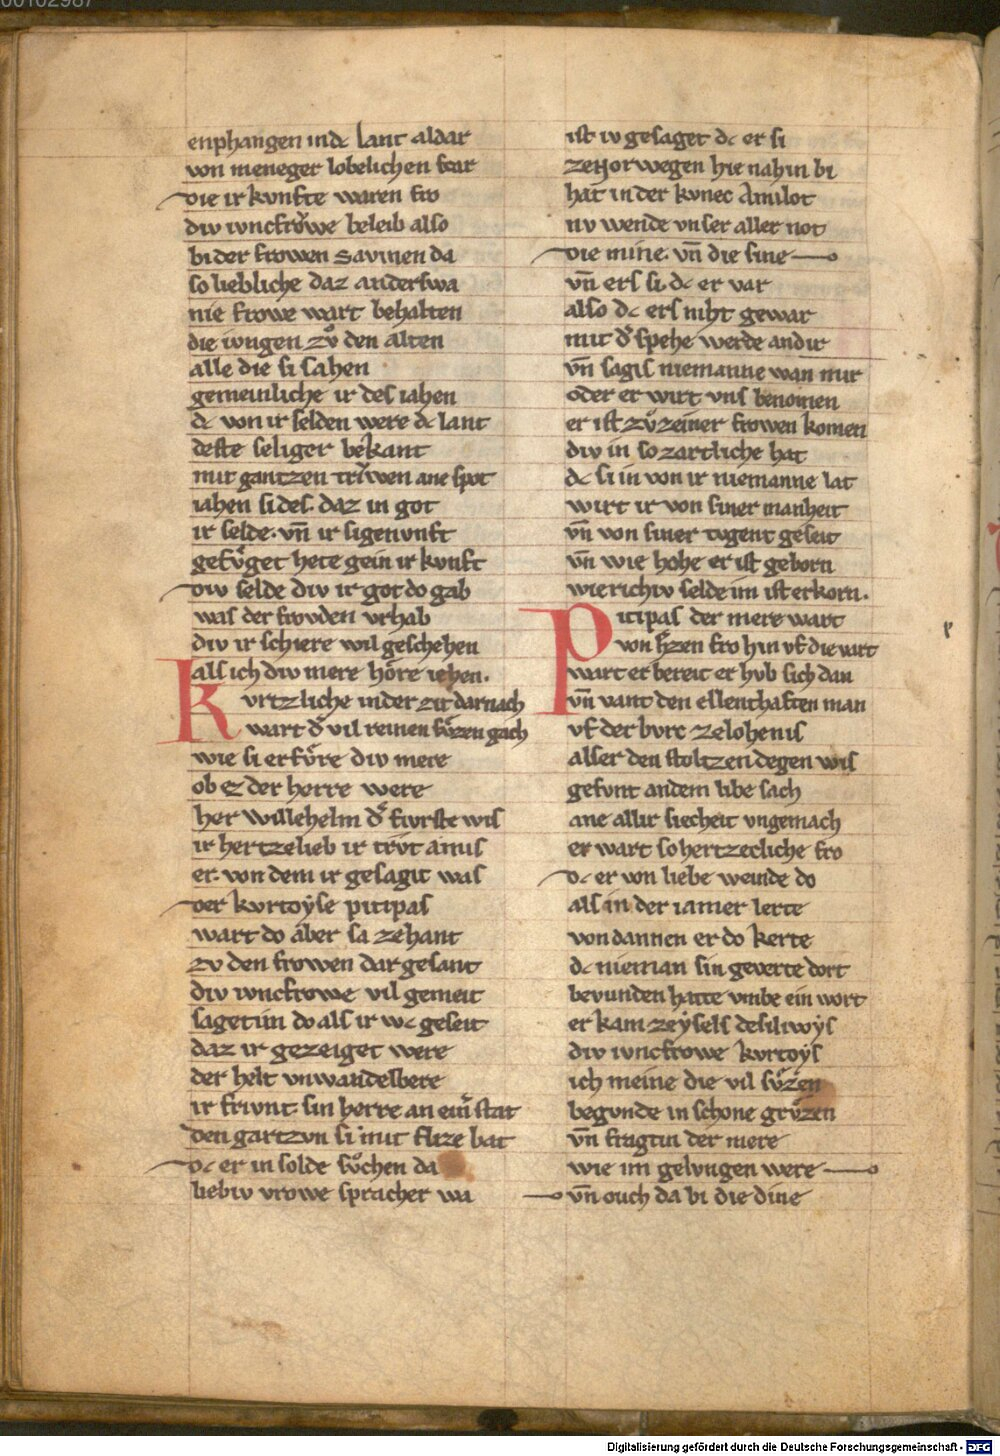 00102987
enphangen in dc lant aldar
von meneger lobelichen scar
die ir kvnfte waren fro
div ivncfrowe beleib also
bi der frowen Savinen da
so liebliche daz anderswa
nie frowe wart behalten
die ivngen zvͦ den alten
alle die si sahen
gemeinliche ir des iahen
dc von ir selden were dc lant
deste seliger bekant
mit gantzen triwen ane spot
iahen si des daz in got
ir selde· vn̄ ir sigenvnft
gefvͤget hete gein ir kvnft
div selde div ir got do gab
was der frowden vrhab
div ir schiere wil geschehen
als ich div mere hore iehen·
Kvrtzliche in der zit dar nach
wart dˢ vil reinen svͤzen gach
wie si erfvͤre div mere
ob ez der herre were
her Willehelm dˢ fivrste wis
ir hertzelieb ir trvt amis
er· von dem ir gesagit was
der kvrtoyse pitipas
wart do aber sa zehant
zv den frowen dar gesant
div ivncfrowe vil gemeit
saget im do als ir wc geseit
daz ir gezeiget were
der helt vnwandelbere
ir frivnt sin herre an einˢ stat
den gartzvn si mit flize bat
dc er in solde svͦchen da
liebiv vrowe sprach er wa
ist iv gesaget dc er si
ze Norwegen hie nahin bi
hat in der kvnec Amilot
nv wende vnser aller not
die mine· vn̄ die sine
vn̄ ers si dc er var
also dc ers niht gewar
mit dˢ spehe werde an dir
vn̄ sagis niemanne wan mir
oder er wirt vns benomen
er ist zvͦ zeiner frowen komen
div in so zartliche hat
dc si in von ir niemanne lat
wirt ir von siner manheit
vn̄ von siner tvgent geseit
vn̄ wie hohe er ist geborn
wie richiv selde im ist erkorn·
Pitipas der mere wart
von hˢzen fro hin vf die vart
wart er bereit er hvb sich dan
vn̄ vant den ellenthaften man
vf der bvrc ze lohenis
als er den stoltzen degen wis
gesvnt an dem libe sach
ane allir siecheit vngemach
er wart so hertzecliche fro
dc er von liebe weinde do
als in der iamer lerte
von dannen er do kerte
dc nieman sin geverte dort
bevunden hatte vmbe ein wort
er kam ze ysels desiliwys
div ivncfrowe kvrtoys
ich meine die vil svͤzen
begvnde in schone grvͤzen
vn̄ fragtin der mere
wie im gelvngen were
vn̄ ouch da bi die dine
Digitalisierung gefördert durch die Deutsche Forschungsgemeinschaft - DFG